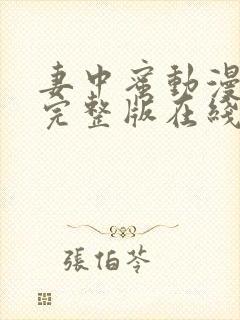 妻中蜜動漫
完整版在綫
張伯苓